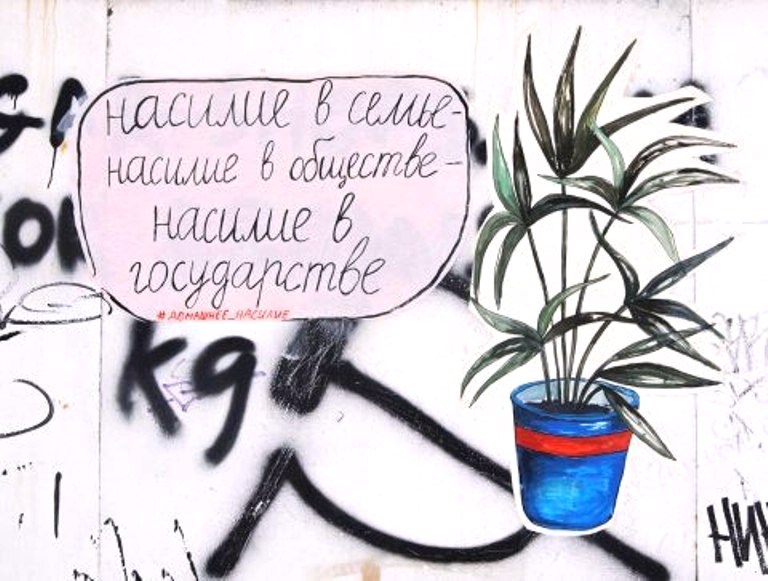 насилие в семье-
насилие в обществе-
насилие в
государстве
#ДОМАШНЕЕ_НАСИЛИЕ
кg